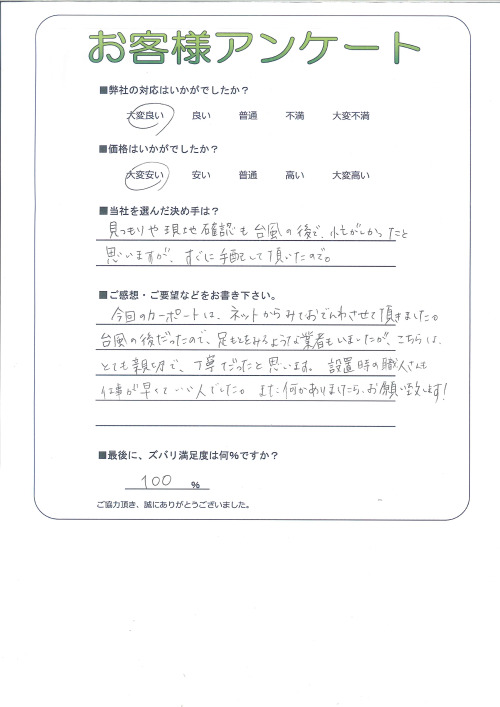 お客様アンケート
■弊社の対応はいかがでしたか？
大変良い 良い 普通 不満 大変不満
■価格はいかがでしたか？
大変安い 安い 普通 高い 大変高い
■当社を選んだ決め手は？
見つもりや現地確認も台風の後で、忙がしかったと
思いますが、すぐに手配して頂いたので。
■ご感想・ご要望などをお書き下さい。
今回のカーポートは、ネットからみておでんわさせて頂きました。
台風の後だったので、足もとをみるような業者もいましたが、こちらは、
とても親切で、丁寧だったと思います。設置時の職人さんも
仕事が早くていい人でした。また何かありましたら、お願い致します!
■最後に、ズバリ満足度は何％ですか？
100 %
ご協力頂き、誠にありがとうございました。